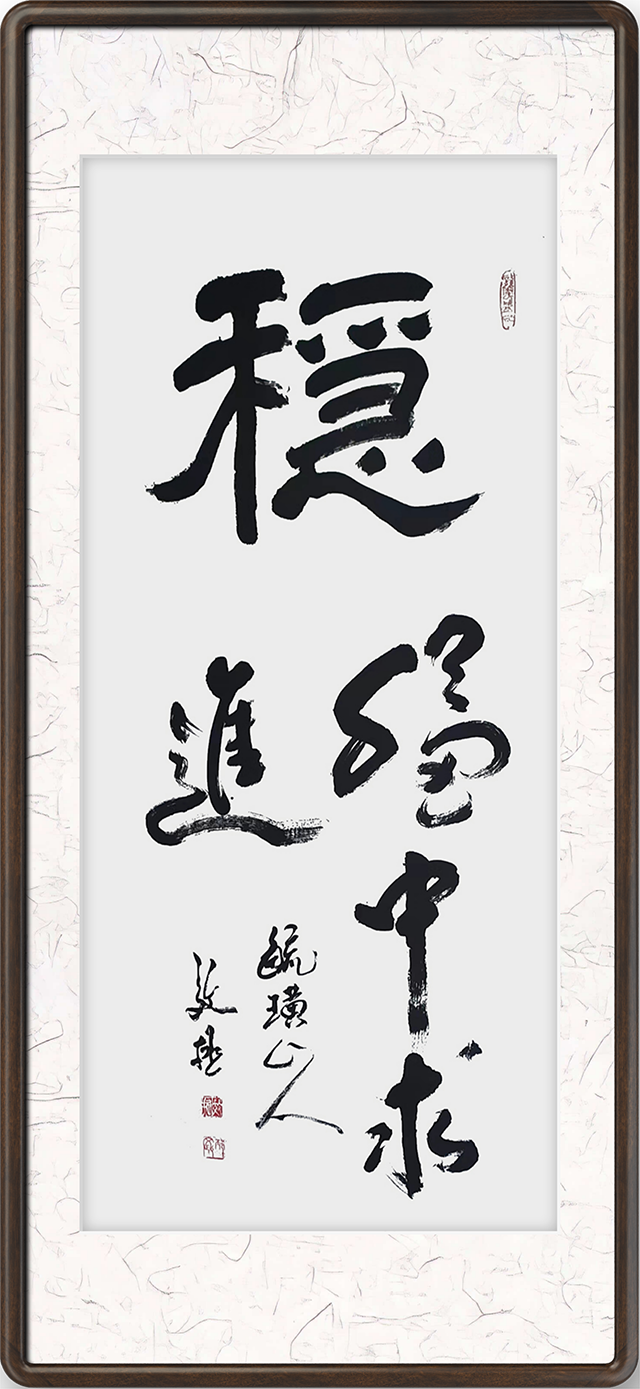 穩
穩中求
進
毓璜山人